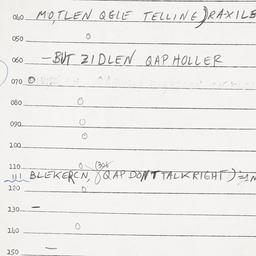 040 MOTLEN QGLE TELLING) RAXILE
050
060 —BUT ZIDLEN QAP HOLLER
070
080
090
100
110 (324
111 BLEKERCN, (QAP DON'T TALK RIGHT)
120
130 —
140
150 —